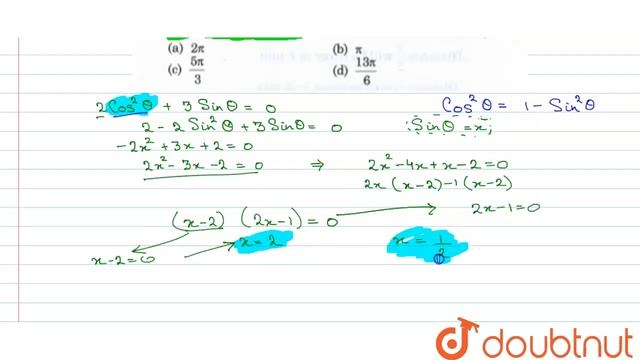 (a) 2π (b) π
(c) 5π/3 (d) 13π/6
2 Cos²θ + 3 Sinθ = 0 Cos²θ = 1 - Sin²θ
2 - 2 Sin²θ + 3 Sinθ = 0 Sinθ = x;
-2x² + 3x + 2 = 0
2x² - 3x - 2 = 0 ⇒ 2x² - 4x + x - 2 = 0
2x (x-2) -1 (x-2)
(x-2) (2x-1) = 0 2x-1=0
x-2=0 x = 2 x = 1/2
doubtnut